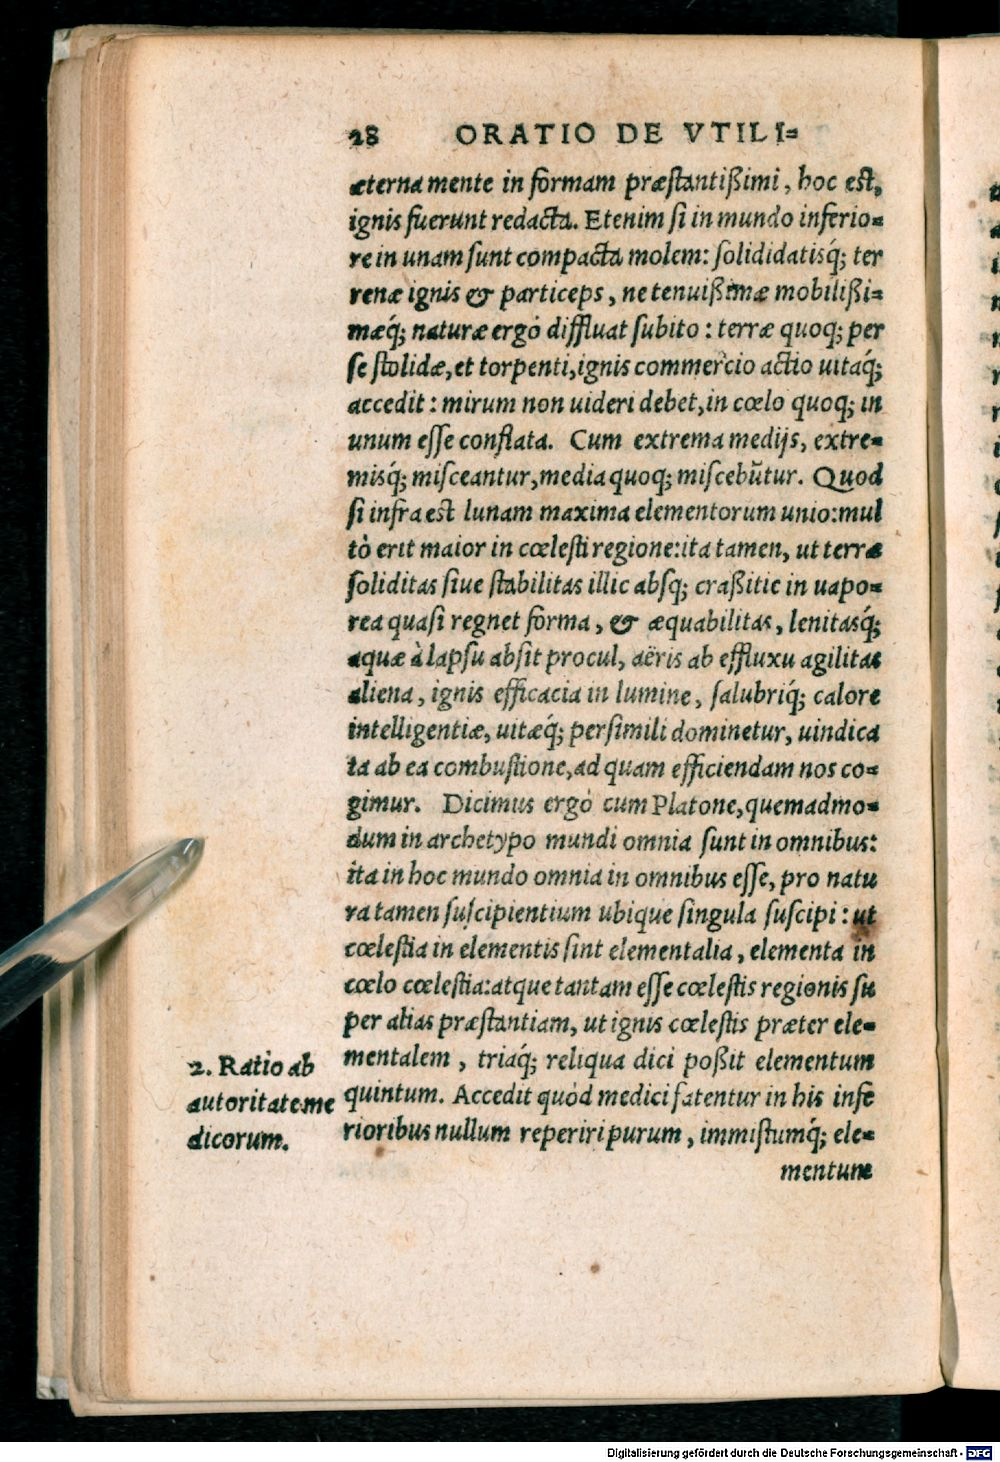 28 ORATIO DE VTILI=
æterna mente in formam præstantißimi, hoc est,
ignis fuerunt redacta. Etenim si in mundo inferio=
re in unam sunt compacta molem: solididatisq́; ter
renæ ignis & particeps, ne tenuißimæ mobilißi=
mæq́; naturæ ergò diffluat subito: terræ quoq; per
se stolidæ, et torpenti, ignis commercio actio uitaq́;
accedit: mirum non uideri debet, in cœlo quoq; in
unum esse conflata. Cum extrema medijs, extre=
misq́; misceantur, media quoq; miscebũtur. Quod
si infra est lunam maxima elementorum unio: mul
tò erit maior in cœlesti regione: ita tamen, ut terræ
soliditas siue stabilitas illic absq; craßitie in uapo=
rea quasi regnet forma, & æquabilitas, lenitasq́;
aquæ à lapsu absit procul, aëris ab effluxu agilitas
aliena, ignis efficacia in lumine, salubriq́; calore
intelligentiæ, uitæq́; persimili dominetur, uindica
ta ab ea combustione, ad quam efficiendam nos co=
gimur. Dicimus ergò cum Platone, quemadmo=
dum in archetypo mundi omnia sunt in omnibus:
ita in hoc mundo omnia in omnibus esse, pro natu
ra tamen suscipientium ubique singula suscipi: ut
cœlestia in elementis sint elementalia, elementa in
cœlo cœlestia: atque tantam esse cœlestis regionis su
per alias præstantiam, ut ignis cœlestis præter ele=
mentalem, triaq́; reliqua dici poßit elementum
quintum. Accedit quòd medici fatentur in his infe
rioribus nullum reperiri purum, immistumq́; ele=
mentum
2. Ratio ab
autoritate me
dicorum.
Digitalisierung gefördert durch die Deutsche Forschungsgemeinschaft - DFG